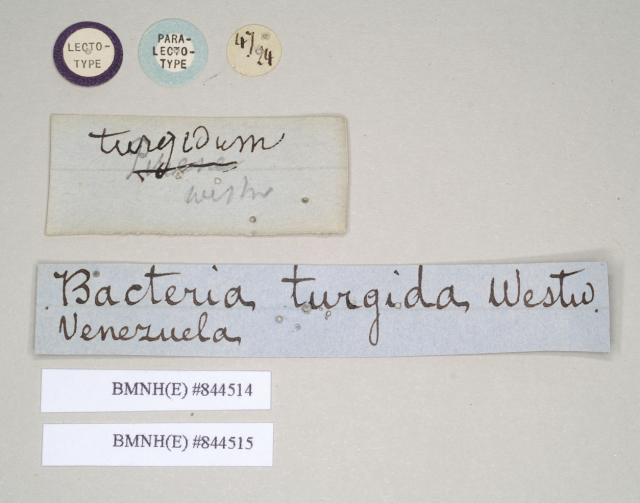 LECTO-
TYPE
PARA-
LECTO-
TYPE
47
24
turgidum
westw
Bacteria turgida Westw.
Venezuela
BMNH(E) #844514
BMNH(E) #844515